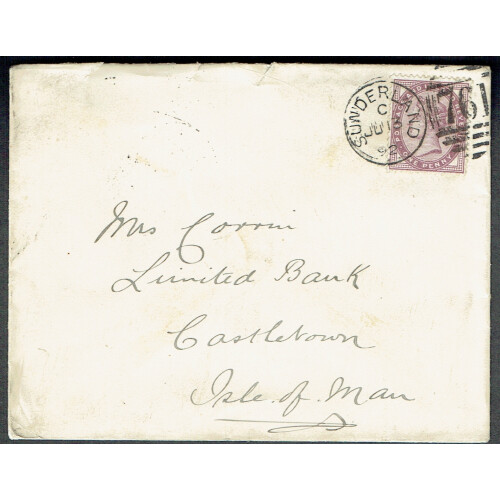 SUNDERLAND
C
761
ONE PENNY
Mrs Corrin
Limited Bank
Castletown
Isle of Man